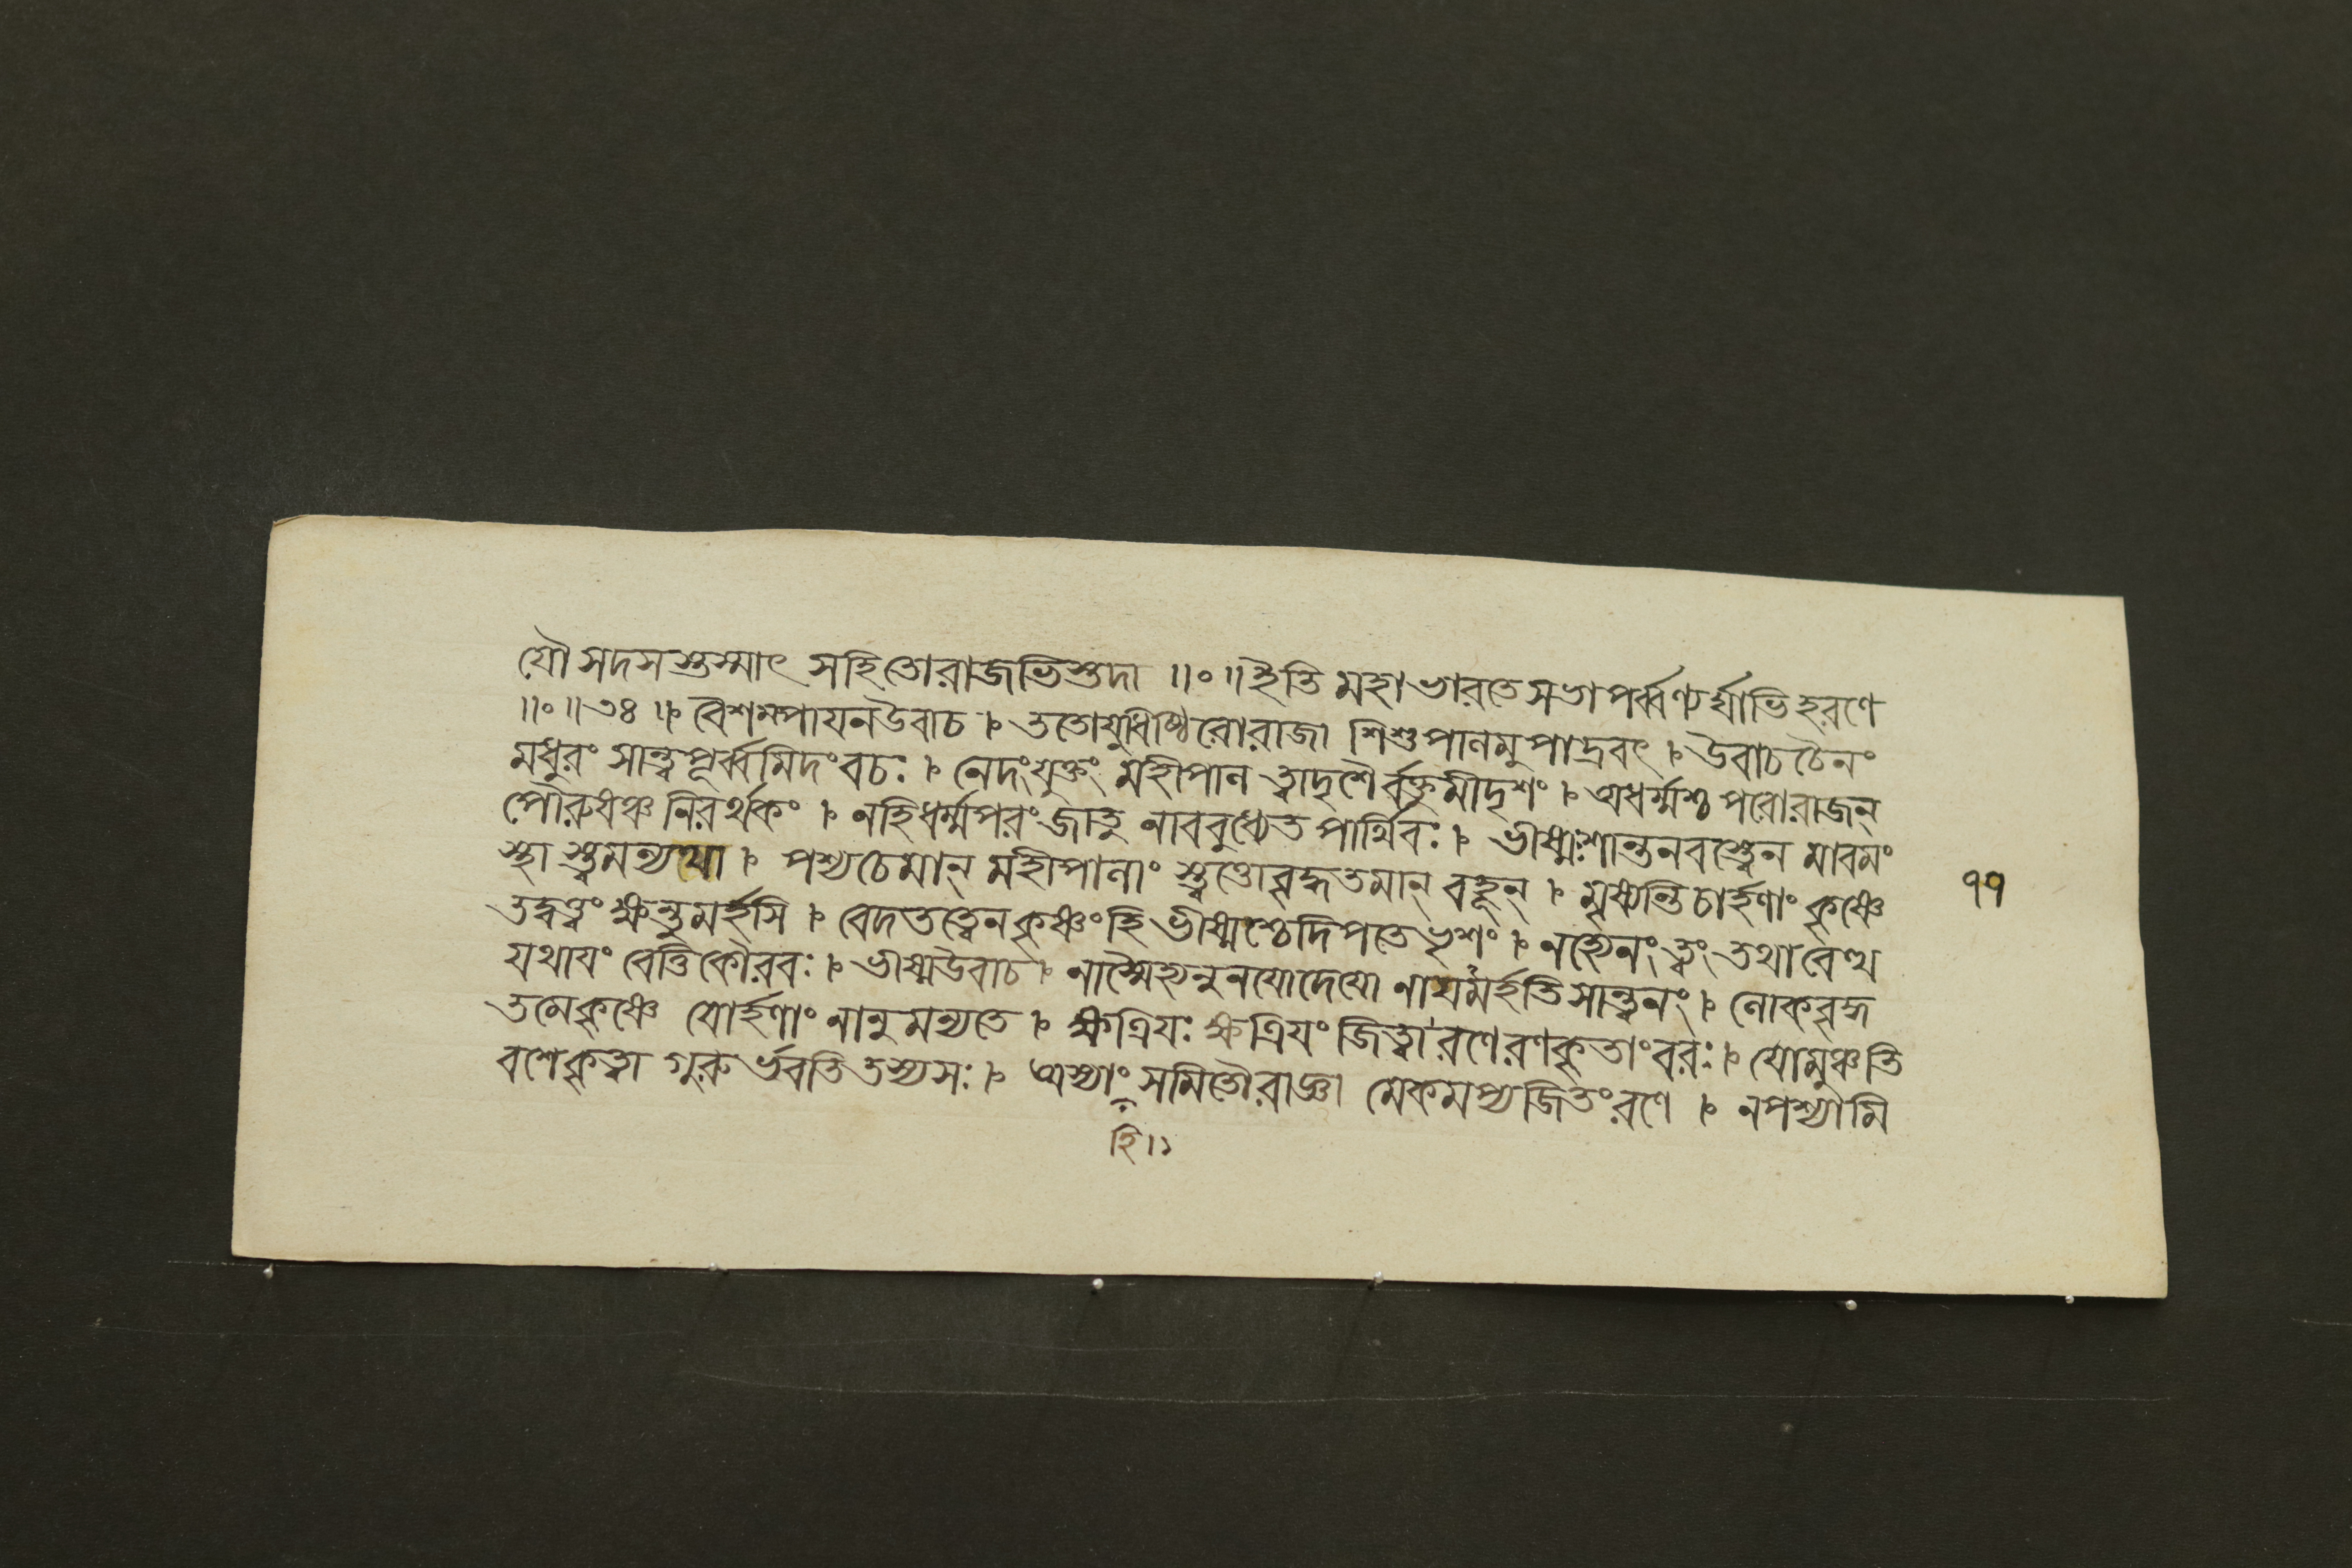 যৌ সদসস্তস্মাৎ সহিতোরাজভিস্তদা ॥॰॥ ইতি মহাভারতে সভাপর্ব্বণ্যর্ঘ্যাভিহরণে
॥॰॥ ৩৪ ॥ বৈশম্পায়নউবাচ । ততোযুধীষ্ঠিরোরাজা শিশুপালমুপাদ্রবৎ । উবাচচৈনং
মধুরং সান্ত্বপূর্ব্বমিদংবচঃ । নেদংযুক্তং মহীপাল ত্বাদৃশৈর্বক্তুমীদৃশং । অধর্ম্মশ্চ পরোরাজন্
পৌরুষঞ্চ নিরর্থকং । নহিধর্ম্মপরংজাতু নাববুধ্যেত পার্থিবঃ । ভীষ্মঃশান্তনবস্ত্বেন মাবমং
স্থা স্ত্বমন্যথা । পশ্যচেমান্ মহীপালাং স্ত্বত্তোবৃদ্ধতমান্ বহূন্ । মৃষ্যন্তিচার্হণাং কৃষ্ণে
তদ্বত্ত্বং ক্ষন্তুমর্হসি । বেদতত্ত্বেনকৃষ্ণংহি ভীষ্মশ্চেদিপতেভৃশং । নহ্যেনংত্বং তথাবেত্থ
যথাযং বেত্তিকৌরবঃ । ভীষ্মউবাচ । নাস্মৈহ্যনুনযোদেযো নাযমর্হতিসান্ত্বনং । লোকবৃদ্ধ
তমেকৃষ্ণে যোর্হণাং নানুমন্যতে । ক্ষত্রিযঃ ক্ষত্রিযং জিত্বা রণেরণকৃতাংবরঃ । যোমুঞ্চতি
বশেকৃত্বা গুরুর্ভবতিতস্যসঃ । অস্যাং সমিতৌরাজ্ঞা মেকমপ্যজিতংরণে । নপশ্যামি
হি ॥
৭৭